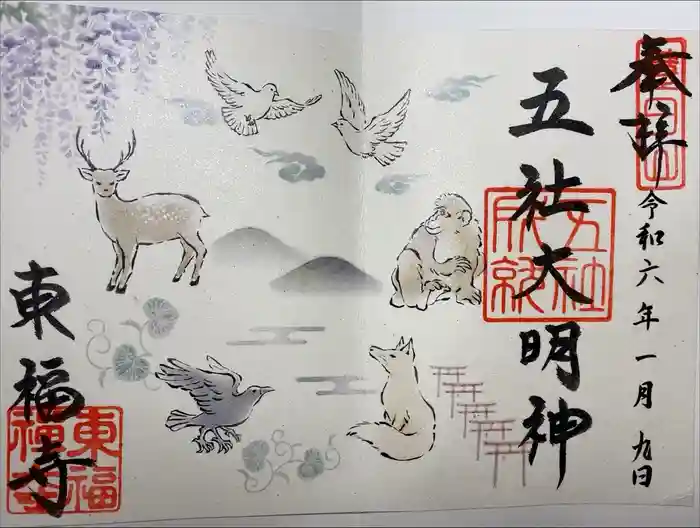 奉拝
令和六年一月九日
五社大明神
五社
成就
東福寺
東福
寺